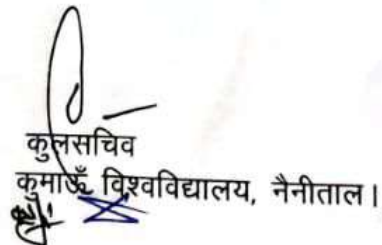 कुलसचिव
कुमाऊँ विश्वविद्यालय, नैनीताल।